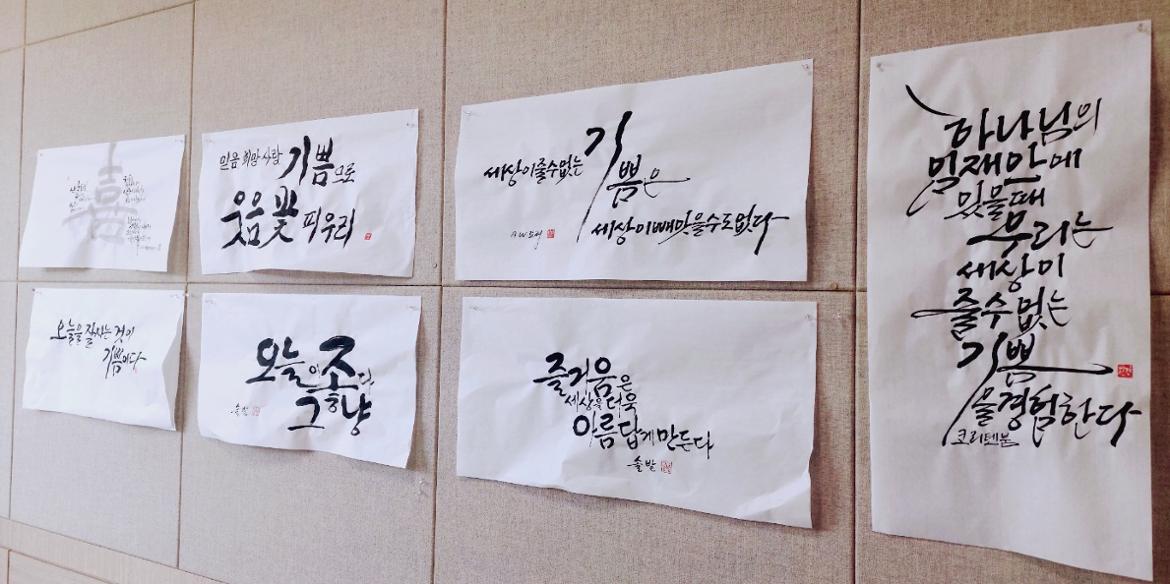 喜
믿음 희망 사랑 기쁨으로
웃음꽃 피우리
세상이 줄 수 없는 기쁨은
세상이 빼앗을 수도 없다
하나님의
임재 안에
있을 때
우리는
세상이
줄 수 없는
기쁨
을 경험한다
코리텐붐
오늘을 잘 사는 것이
기쁨이다
오늘이 좋다
그냥
솔발
즐거움은
세상을 더욱
아름답게 만든다
솔발